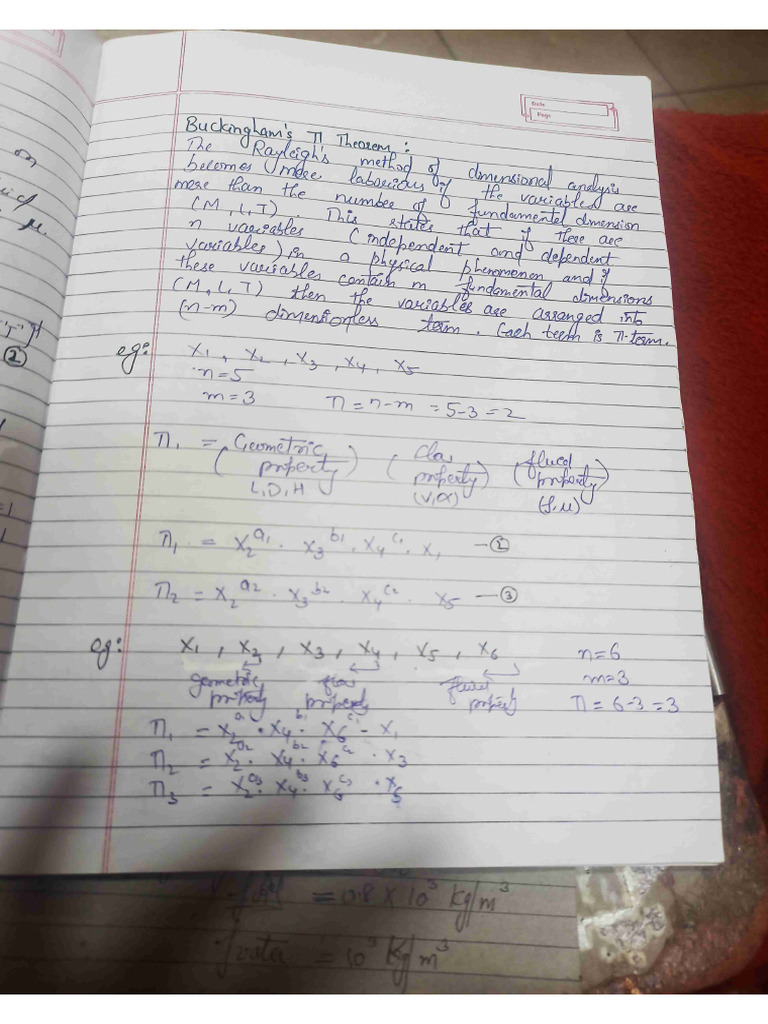 Date
Page
Buckingham's π Theorem :
The Rayleigh's method of dimensional analysis
becomes more laborious if the variabled are
more than the number of fundamental dimension
(M, L, T). This states that if there are
n variables (independent and dependent
variables) in a physical phenomenon and if
these variables contain m fundamental dimensions
(M, L, T) then the variables are arranged into
(n-m) dimensionless term. Each term is π-term.
eg: x1, x2, x3, x4, x5
n=5
m=3 π = n-m = 5-3 = 2
π1 = (Geometric property) (property) (fluid property)
L, D, H (V, α) (ρ, μ)
π1 = x2^a1 · x3^b1 · x4^c1 · x1 —②
π2 = x2^a2 · x3^b2 · x4^c2 · x5 —③
eg: x1, x2, x3, x4, x5, x6 n=6
m=3
geometric property flow property fluid property π = 6-3 = 3
π1 = x2^a · x4^b1 · x6^c1 - x1
π2 = x2^a2 · x4^b2 · x6^c2 · x3
π3 = x2^a3 · x4^b3 x6^c3 · x5
= 0.8 × 10^3 kg/m^3
= 10^3 Kg/m^3
on
μ.
"T"
②